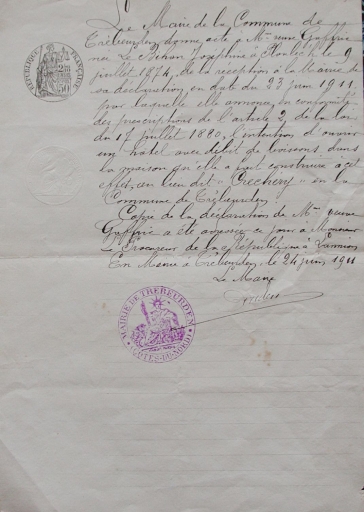 Le Maire de la Commune de
Trébeurden donne acte à Mme veuve Geffric
née Le Bihan Joséphine à le 9
juillet 1874, de la réception à la Mairie de
sa déclaration, en date du 23 juin 1911
par laquelle elle annonce, en conformité
des prescriptions de l'article 2 de la loi
du 17 juillet 1880, l'intention d'ouvrir
un hôtel avec débit de boissons dans
la maison qu'elle a fait construire à cet
effet, au lieu dit "Crechery" en la
Commune de Trébeurden.
Copie de la déclaration de Mme veuve
Geffric a été adressée ce jour à Monsieur
Le Procureur de la République à Lannion
En Mairie à Trébeurden, le 24 juin 1911
Le Maire
RÉPUBLIQUE FRANÇAISE
MAIRIE DE TREBEURDEN
(CÔTES-DU-NORD)